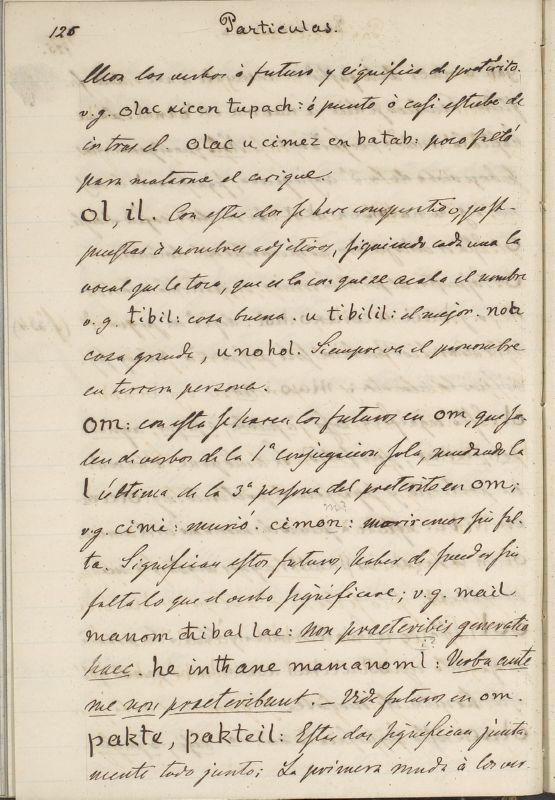 126 Particulas.
Uson los verbos ò futuro y significa de preterito
v.g. olac xicen tupach: ó punto ò casi estube de
ir tras el. olac u cimez en batab: poco faltó
para matarme el cacique.
ol, il. Con estas dos se hace compuestos, post-
puestas à nombres adjetivos, siguiendo cada una la
vocal que le toca, que es la con que se acaba el nombre
v.g. tibil: cosa buena. u tibilil: el mejor. noh
cosa grande, u nohol. Siempre va el pronombre
en tercera persona.
om: con esta se hacen los futuros en om, que sa-
len de verbos de la 1ª conjugacion sola, mudando la
l última de la 3ª persona del preterito en om;
v.g. cimi: murió. cimon: moriremos sin fal-
ta. Significan estos futuros haber de suceder sin
falta lo que el verbo significare; v.g. mail
manom chibal lae: non praeteribit generatio
haec. he in thane mamanom l: Verba aute
me non praeteribunt. — Vide futuros en om.
pakte, pakteil: Estas dos significan junta-
mente todo junto; La primera muda à los ver-